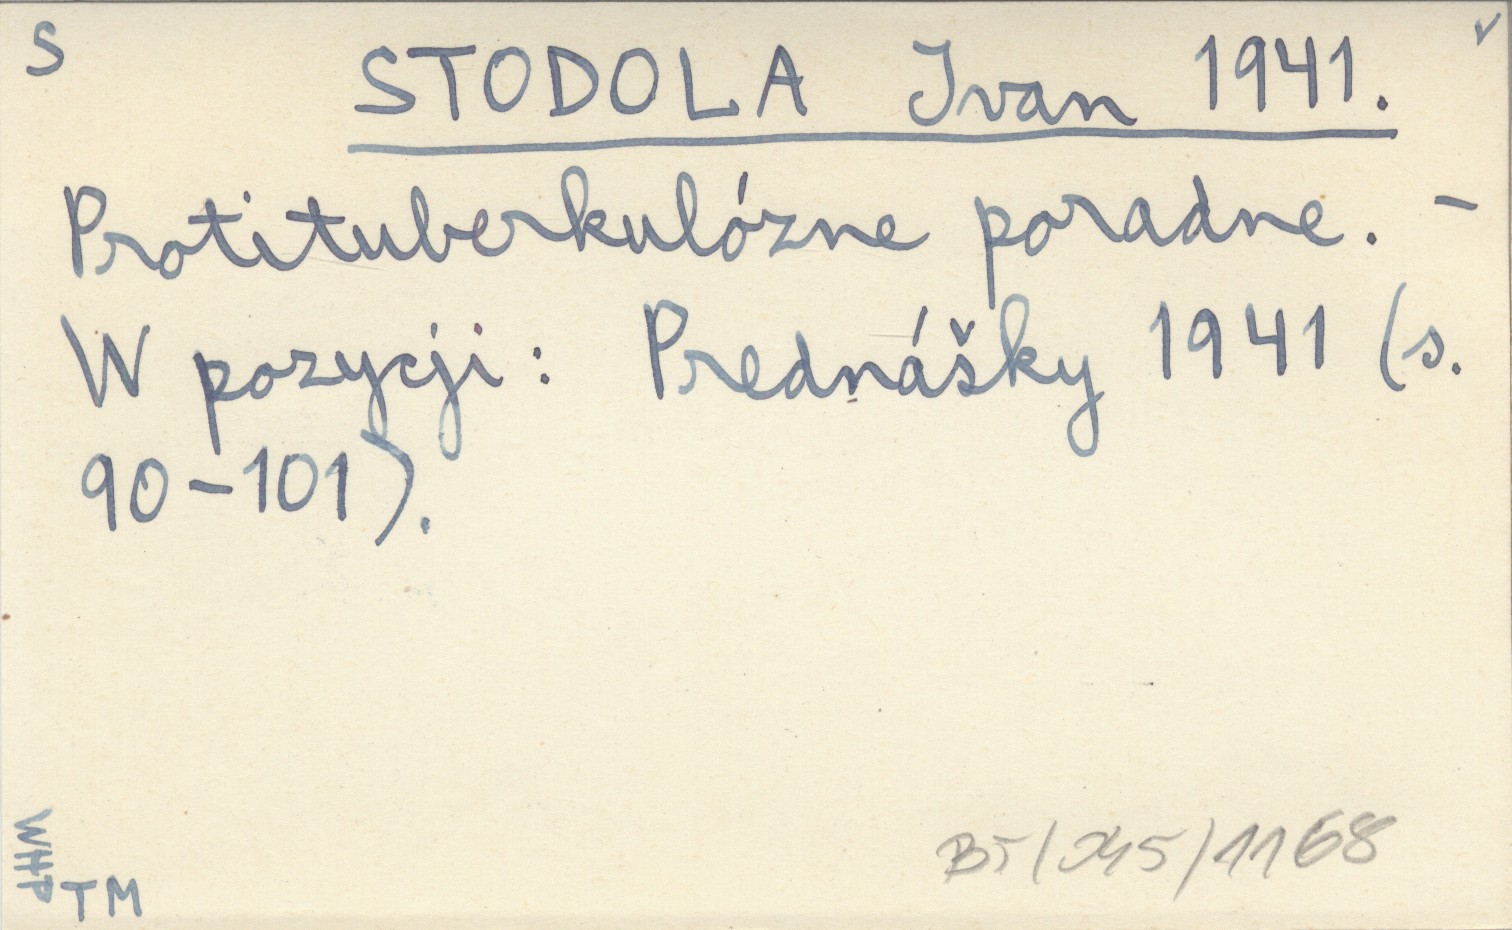 S
STODOLA Ivan 1941.
Protituberkulózne poradne. –
W pozycji: Prednášky 1941 (s.
90–101).
WHP
TM